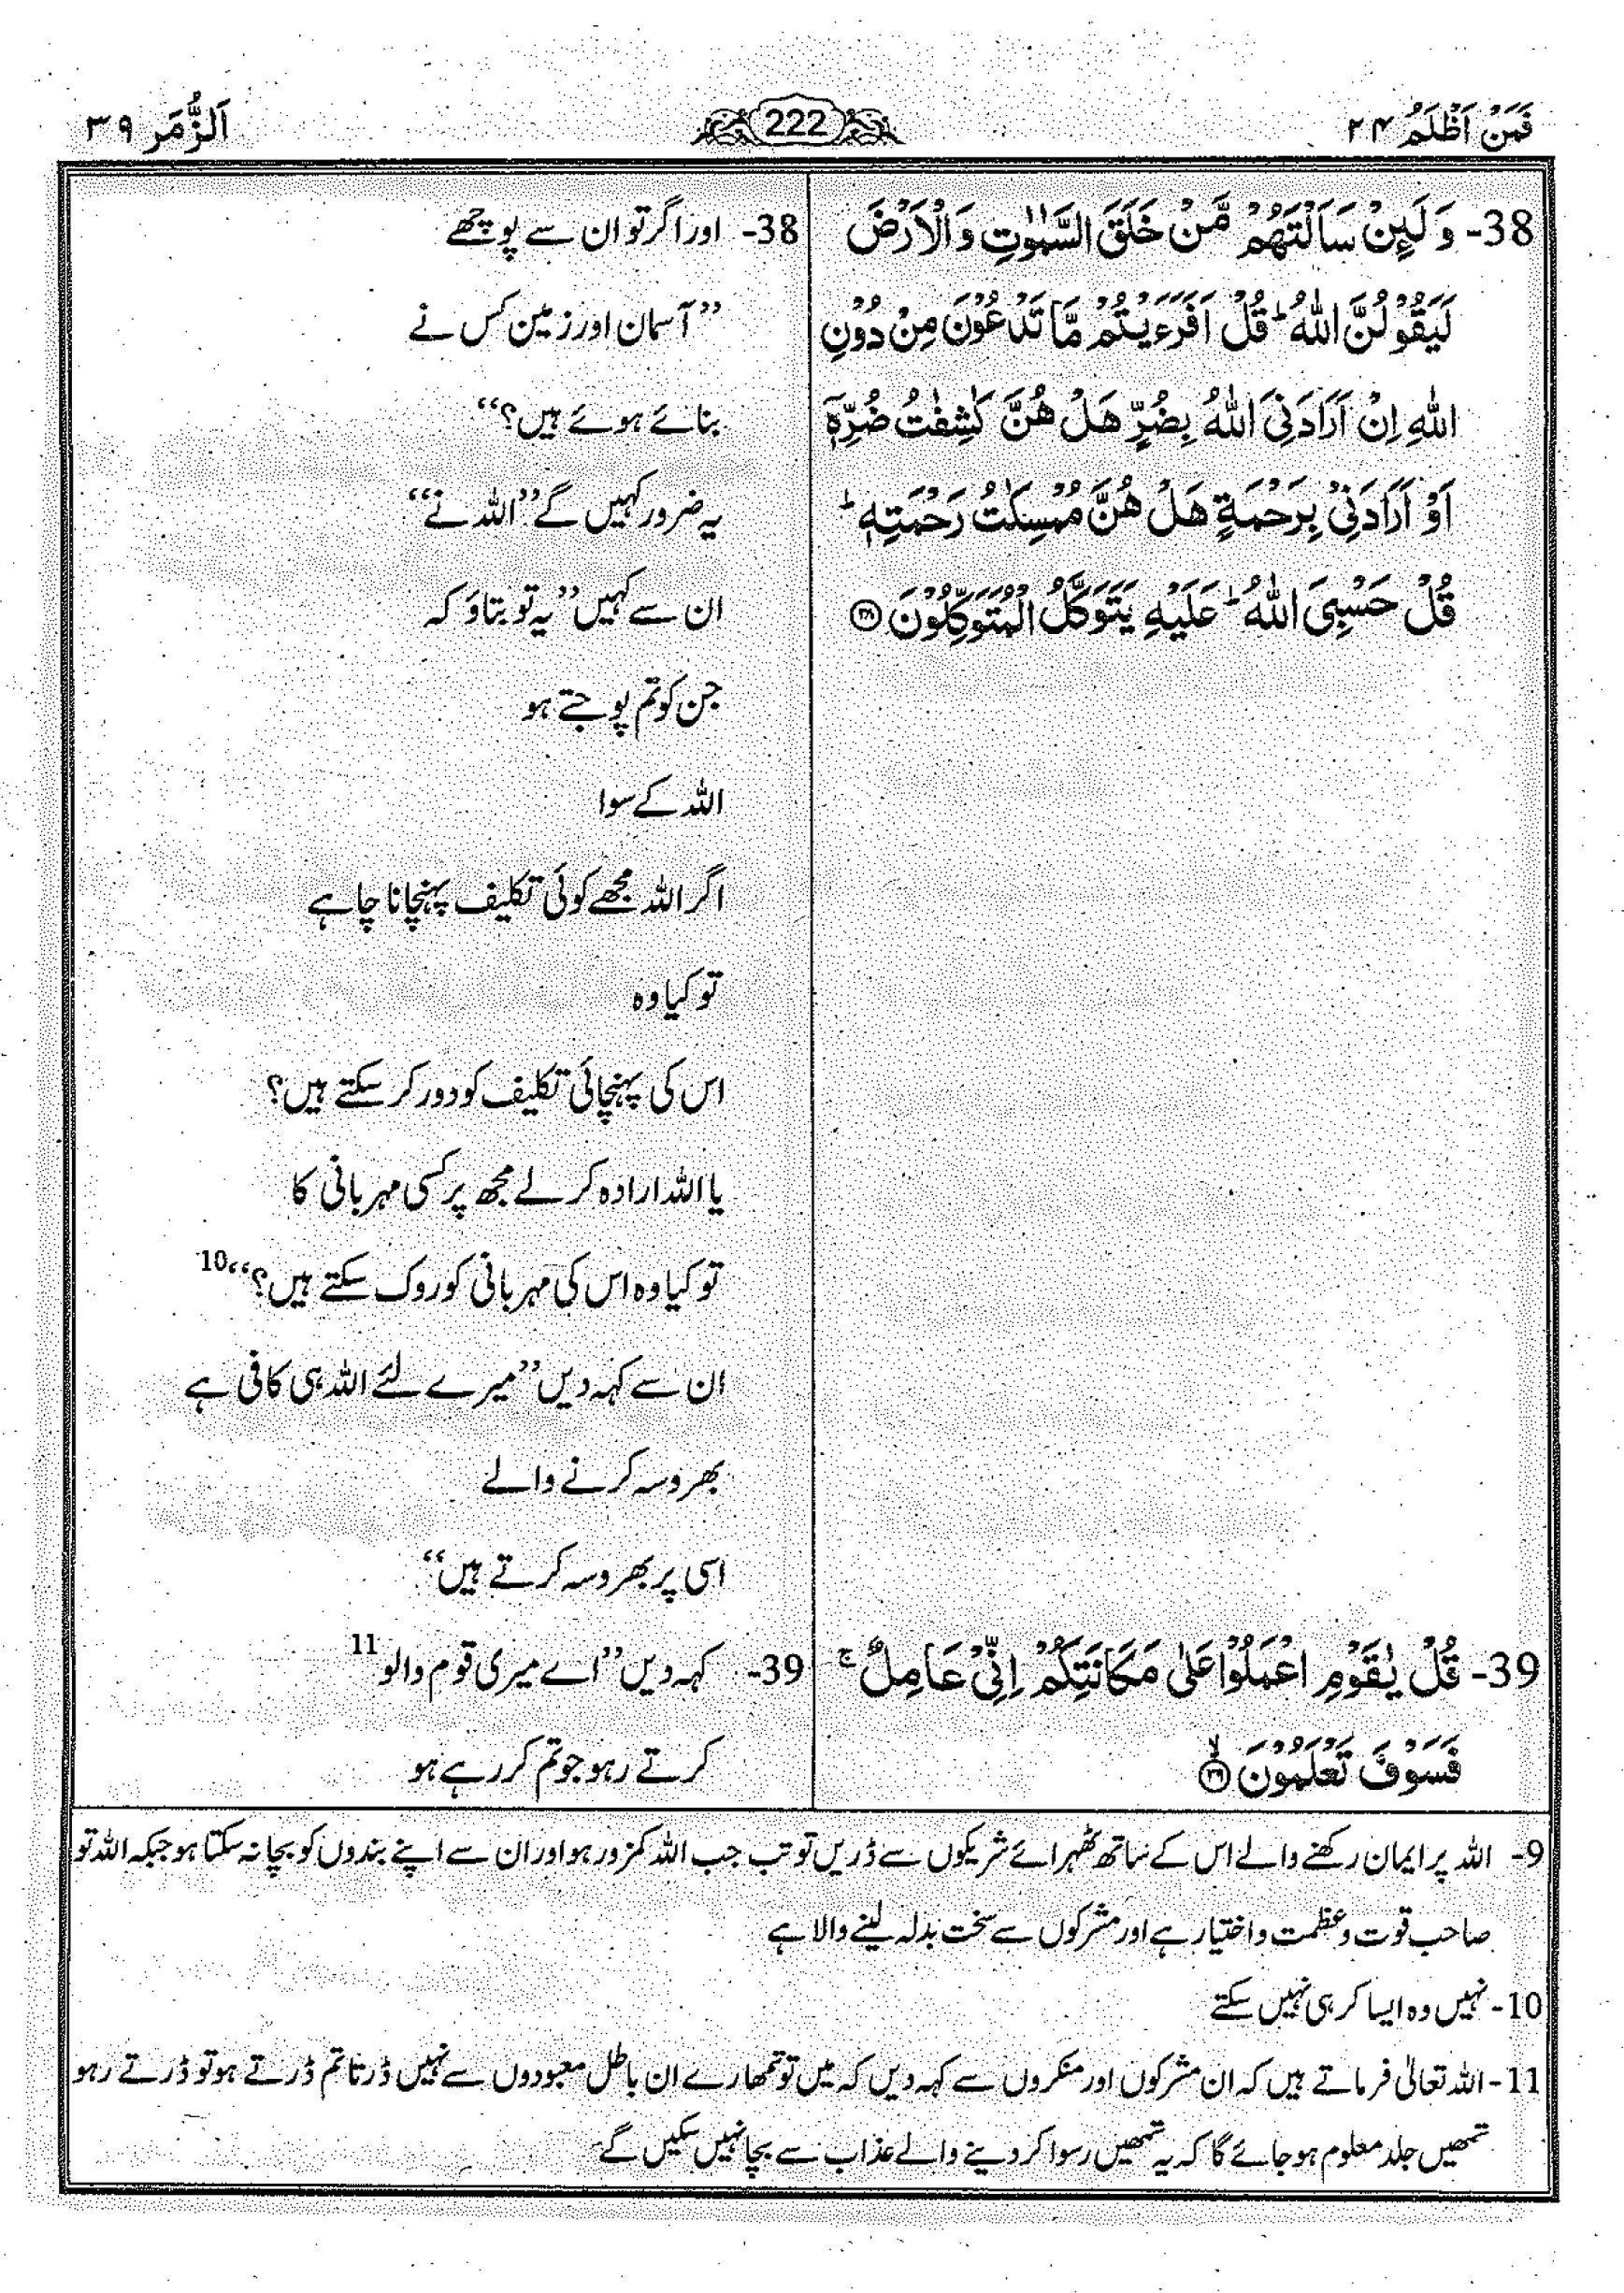 فَمَنْ اَظْلَمُ ۲۴
222
اَلزُّمَر ۳۹
38- وَلَئِنْ سَاَلْتَهُمْ مَّنْ خَلَقَ السَّمٰوٰتِ وَالْاَرْضَ
لَيَقُوْلُنَّ اللّٰهُ ؕ قُلْ اَفَرَءَيْتُمْ مَّا تَدْعُوْنَ مِنْ دُوْنِ
اللّٰهِ اِنْ اَرَادَنِيَ اللّٰهُ بِضُرٍّ هَلْ هُنَّ كٰشِفٰتُ ضُرِّهٖٓ
اَوْ اَرَادَنِيْ بِرَحْمَةٍ هَلْ هُنَّ مُمْسِكٰتُ رَحْمَتِهٖ ؕ
قُلْ حَسْبِيَ اللّٰهُ ؕ عَلَيْهِ يَتَوَكَّلُ الْمُتَوَكِّلُوْنَ ۝۳۸
38- اور اگر تو ان سے پوچھے
’’آسمان اور زمین کس نے
بنائے ہوئے ہیں؟‘‘
یہ ضرور کہیں گے ’’اللہ نے‘‘
ان سے کہیں ’’یہ تو بتاؤ کہ
جن کو تم پوجتے ہو
اللہ کے سوا
اگر اللہ مجھے کوئی تکلیف پہنچانا چاہے
تو کیا وہ
اس کی پہنچائی تکلیف کو دور کر سکتے ہیں؟
یا اللہ ارادہ کر لے مجھ پر کسی مہربانی کا
تو کیا وہ اس کی مہربانی کو روک سکتے ہیں؟‘‘10
ان سے کہہ دیں ’’میرے لئے اللہ ہی کافی ہے
بھروسہ کرنے والے
اسی پر بھروسہ کرتے ہیں‘‘
39- قُلْ يٰقَوْمِ اعْمَلُوْا عَلٰى مَكَانَتِكُمْ اِنِّيْ عَامِلٌ ۚ
فَسَوْفَ تَعْلَمُوْنَ ۝۳۹ۙ
39- کہہ دیں ’’اے میری قوم والو11
کرتے رہو جو تم کر رہے ہو
9- اللہ پر ایمان رکھنے والے اس کے ساتھ ٹھہرائے شریکوں سے ڈریں تو تب جب اللہ کمزور ہو اور ان سے اپنے بندوں کو بچا نہ سکتا ہو جبکہ اللہ تو
صاحب قوت و عظمت و اختیار ہے اور مشرکوں سے سخت بدلہ لینے والا ہے
10- نہیں وہ ایسا کر ہی نہیں سکتے
11- اللہ تعالیٰ فرماتے ہیں کہ ان مشرکوں اور منکروں سے کہہ دیں کہ میں تو تمھارے ان باطل معبودوں سے نہیں ڈرتا تم ڈرتے ہو تو ڈرتے رہو
تمھیں جلد معلوم ہو جائے گا کہ یہ تمھیں رسوا کر دینے والے عذاب سے بچا نہیں سکیں گے